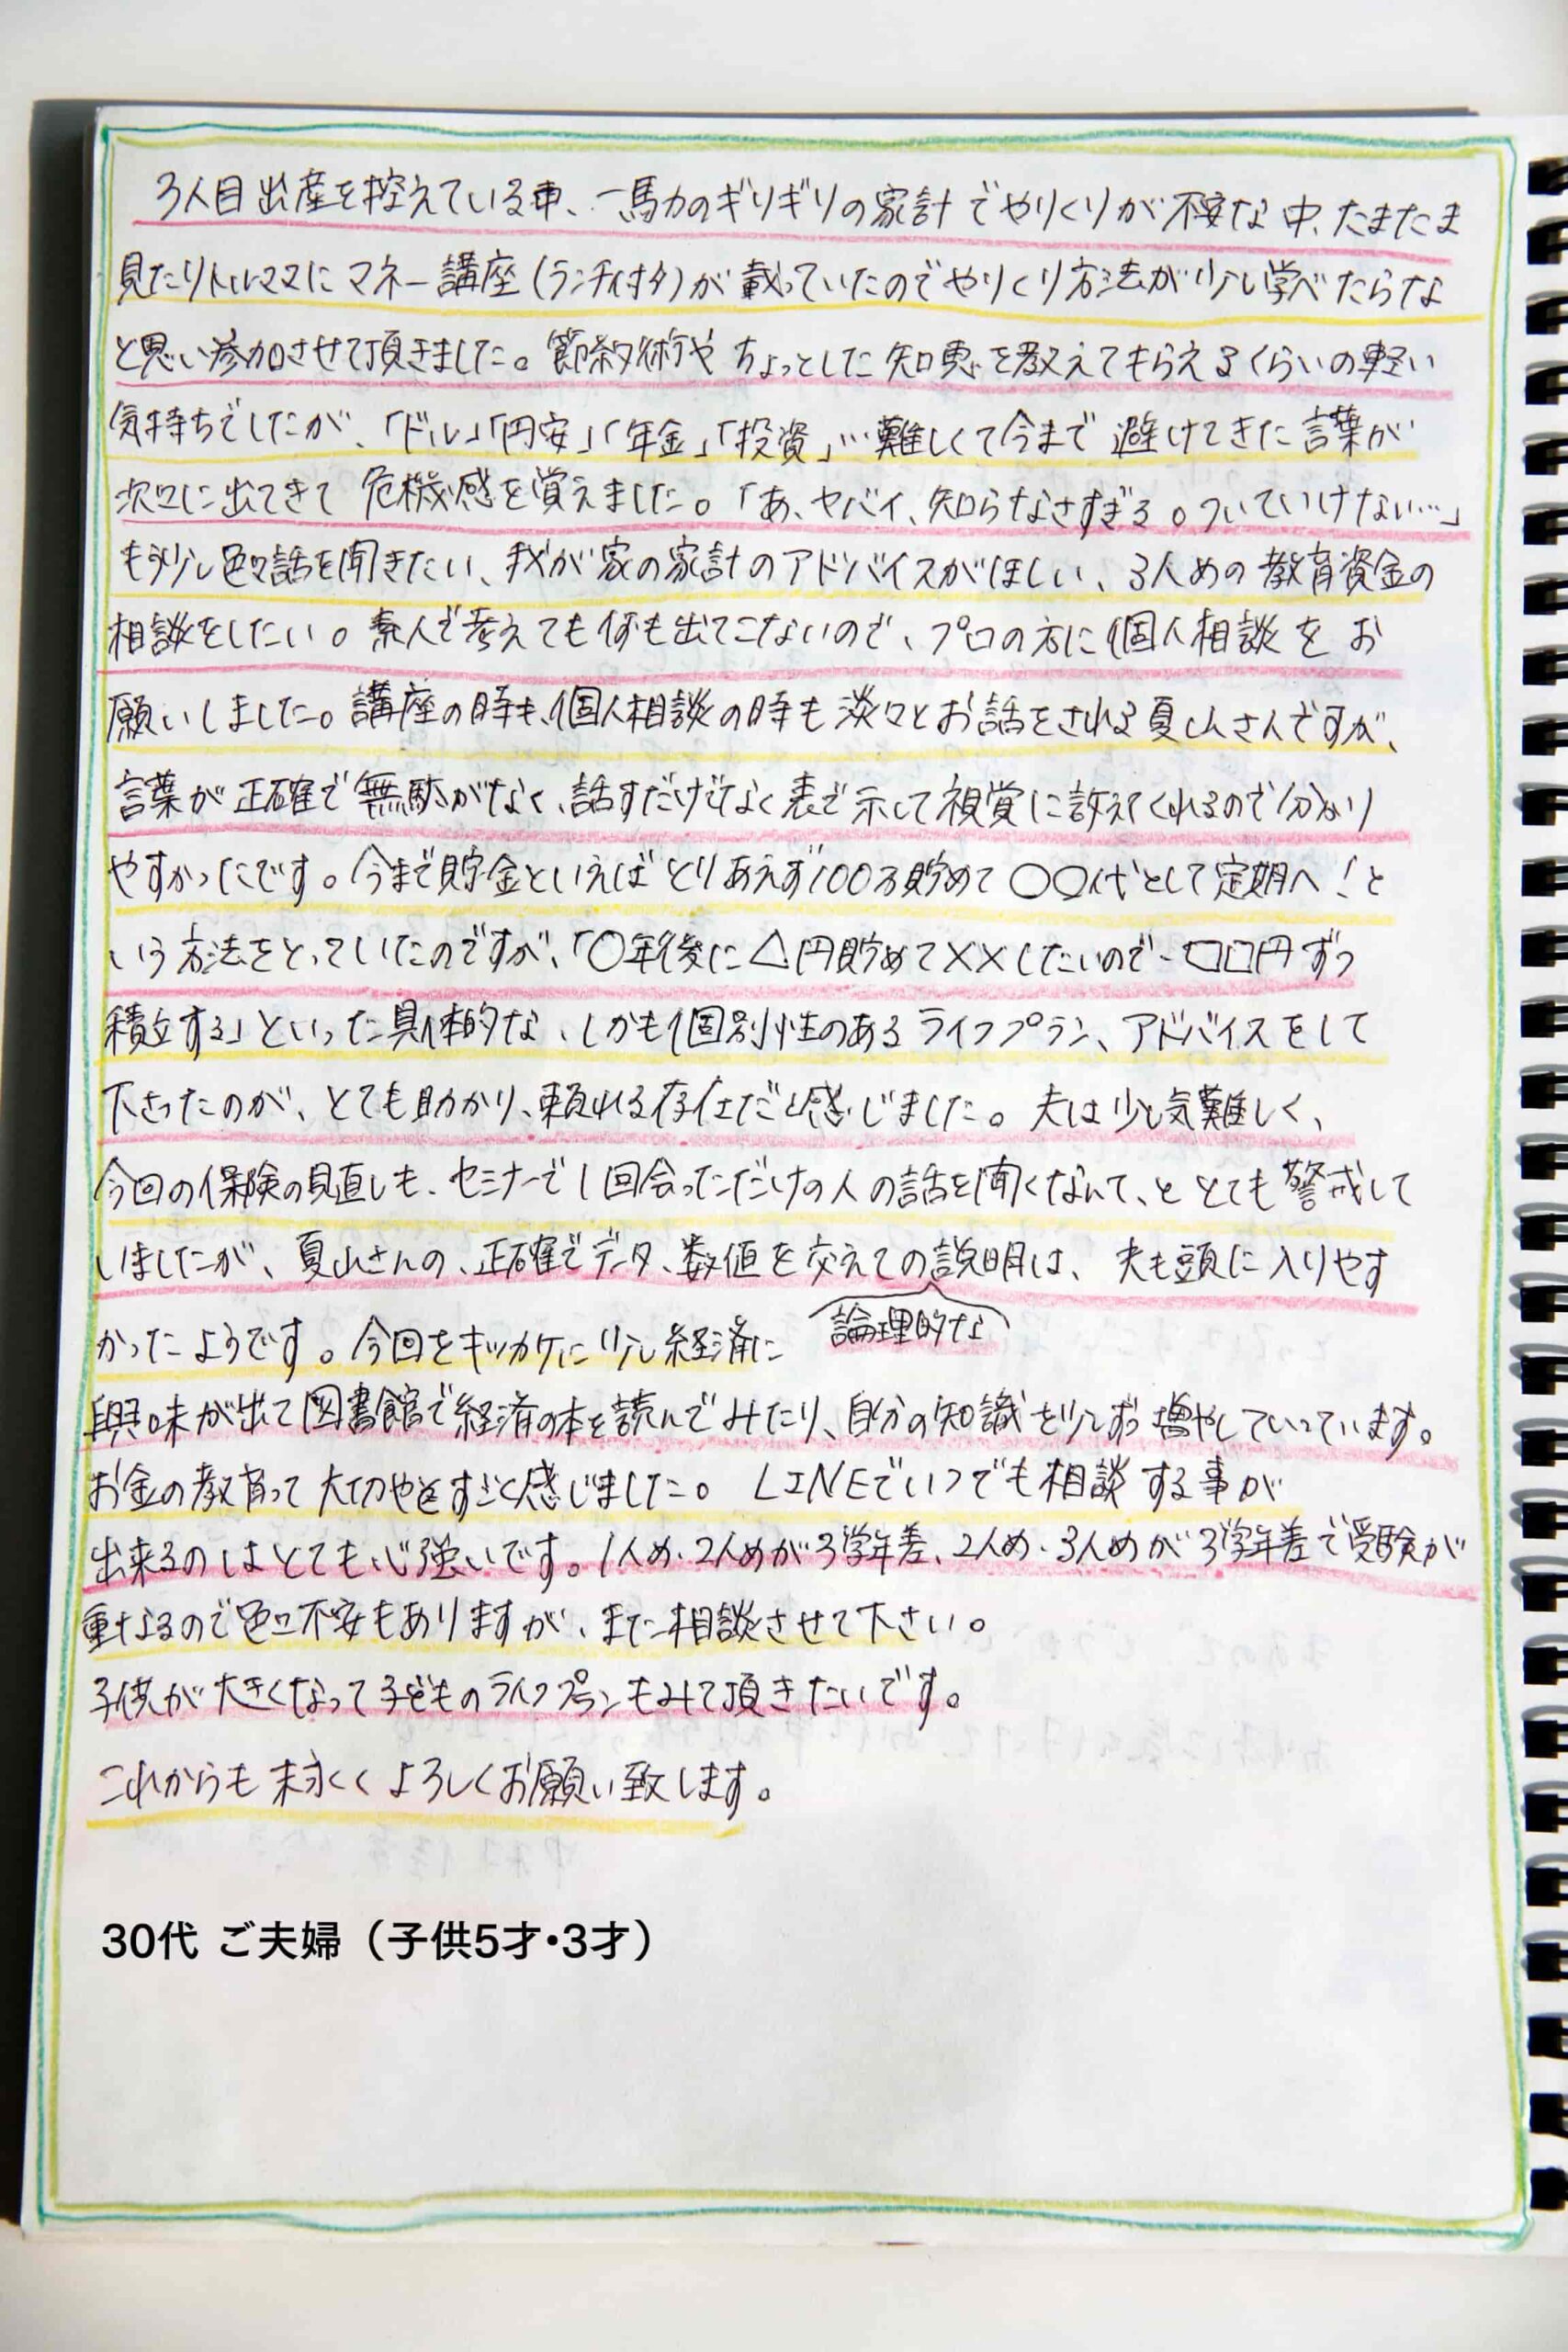 3人目出産を控えている中、一馬力のギリギリの家計でやりくりが不安な中、たまたま
見たリトルママにマネー講座(ランチ付タ)が載っていたのでやりくり方法が少し学べたらな
と思い参加させて頂きました。節約術やちょっとした知恵を教えてもらえるくらいの軽い
気持ちでしたが、「ドル」「円安」「年金」「投資」…難しくて今まで避けてきた言葉が
次々に出てきて危機感を覚えました。「あ、ヤバイ、知らなさすぎる。ついていけない…」
もう少し色々話を聞きたい、我が家の家計のアドバイスがほしい、3人めの教育資金の
相談をしたい。素人で考えても何も出てこないので、プロの方に個人相談をお
願いしました。講座の時も、個人相談の時も淡々とお話をされる夏山さんですが、
言葉が正確で無駄がなく、話すだけでなく表で示して視覚に訴えてくれるので分かり
やすかったです。今まで貯金といえばとりあえず100万貯めて〇〇代として定期へ!と
いう方法をとっていたのですが、「〇年後に△円貯めて××したいので、□□円ずつ
積立する」といった具体的な、しかも個別性のあるライフプラン、アドバイスをして
下さったのが、とても助かり、頼れる存在だと感じました。夫は少し気難しく、
今回の保険の見直しも、セミナーで1回会っただけの人の話を聞くなんて、ととても警戒して
いましたが、夏山さんの、正確でデータ、数値を交えての説明は、夫も頭に入りやす
論理的な
かったようです。今回をキッカケに少し経済に
興味が出て図書館で経済の本を読んでみたり、自分の知識を少しずつ増やしていっています。
お金の教育って大切やとすごく感じました。LINEでいつでも相談する事が
出来るのはとても心強いです。1人め・2人めが3学年差、2人め・3人めが3学年差で受験が
重なるので色々不安もありますが、また相談させて下さい。
子供が大きくなって子どものライフプランもみて頂きたいです。
これからも末永くよろしくお願い致します。
30代 ご夫婦（子供5才・3才）